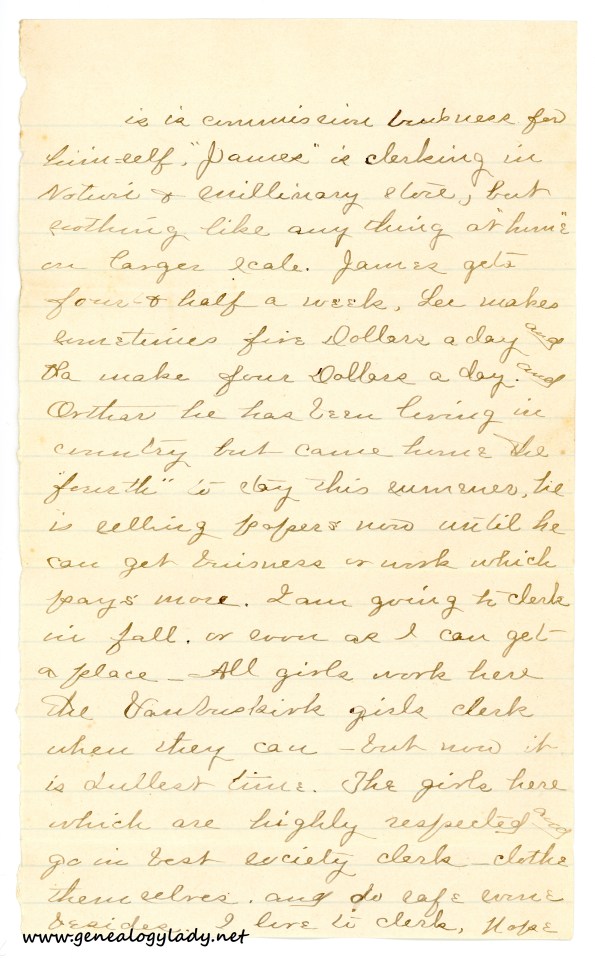 is in commission buisness for
himself, "James" is clerking in
Notion & millinary store, but
nothing like any thing at "home"
on larger scale. James gets
four & half a week, Lee makes
sometimes five Dollars a day and
Pa make four Dollars a day. and
Orthar he has been living in
country but came home "the
fourth" to stay this summer, he
is selling papers now until he
can get buisness or work which
pays more. I am going to clerk
in fall. or soon as I can get
a place – All girls work here
The Vanbuskirk girls clerk
when they can – but now it
is dullest time. The girls here
which are highly respected and
go in best society clerk – clothe
themselves. and do safe some
besides. I live to clerk, Hope
www.genealogylady.net